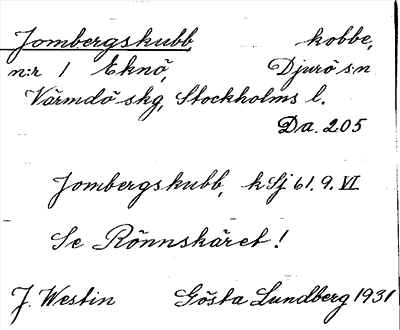 Jombergskubb kobbe,
n:r 1 Eknö, Djurö sn
Värmdö skg, Stockholms l.
Da. 205
Jombergskubb, k Sj 61. 9. VI
Se Rönnskäret!
J. Westin Gösta Lundberg 1931